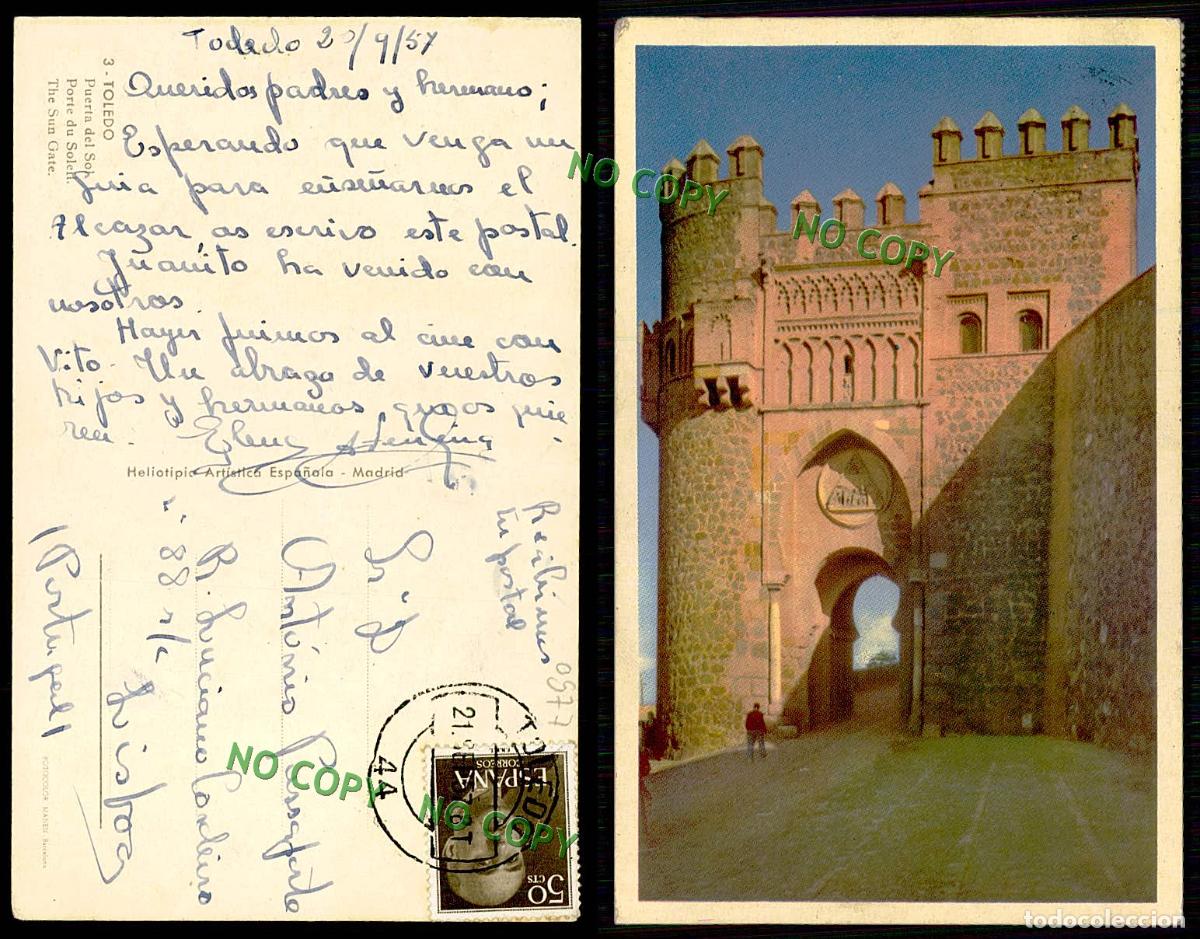 Toledo 20/9/57
Queridos padres y hermano;
Esperando que venga un
guia para enseñarnos el
Alcazar, os escrivo este postal.
Juanito ha venido con
nosotros.
Hayer fuimos al cine con
Vito. Un abrazo de vuestros
hijos y hermanos, que os quie-
ren.
Elena
3 - TOLEDO
Puerta del Sol.
Porte du Soleil.
The Sun Gate.
Heliotipia Artística Española - Madrid
Recibimos
tu postal
Sr. D.
António
R. Luciano Cordeiro
nº 88 r/c
Lisboa
(Portugal)
0977
TOLEDO
21 SE
44
ESPAÑA
CORREOS
50
CTS
FOTOCOLOR MANEN, Barcelona
NO COPY
NO COPY
NO COPY
NO COPY
todocoleccion